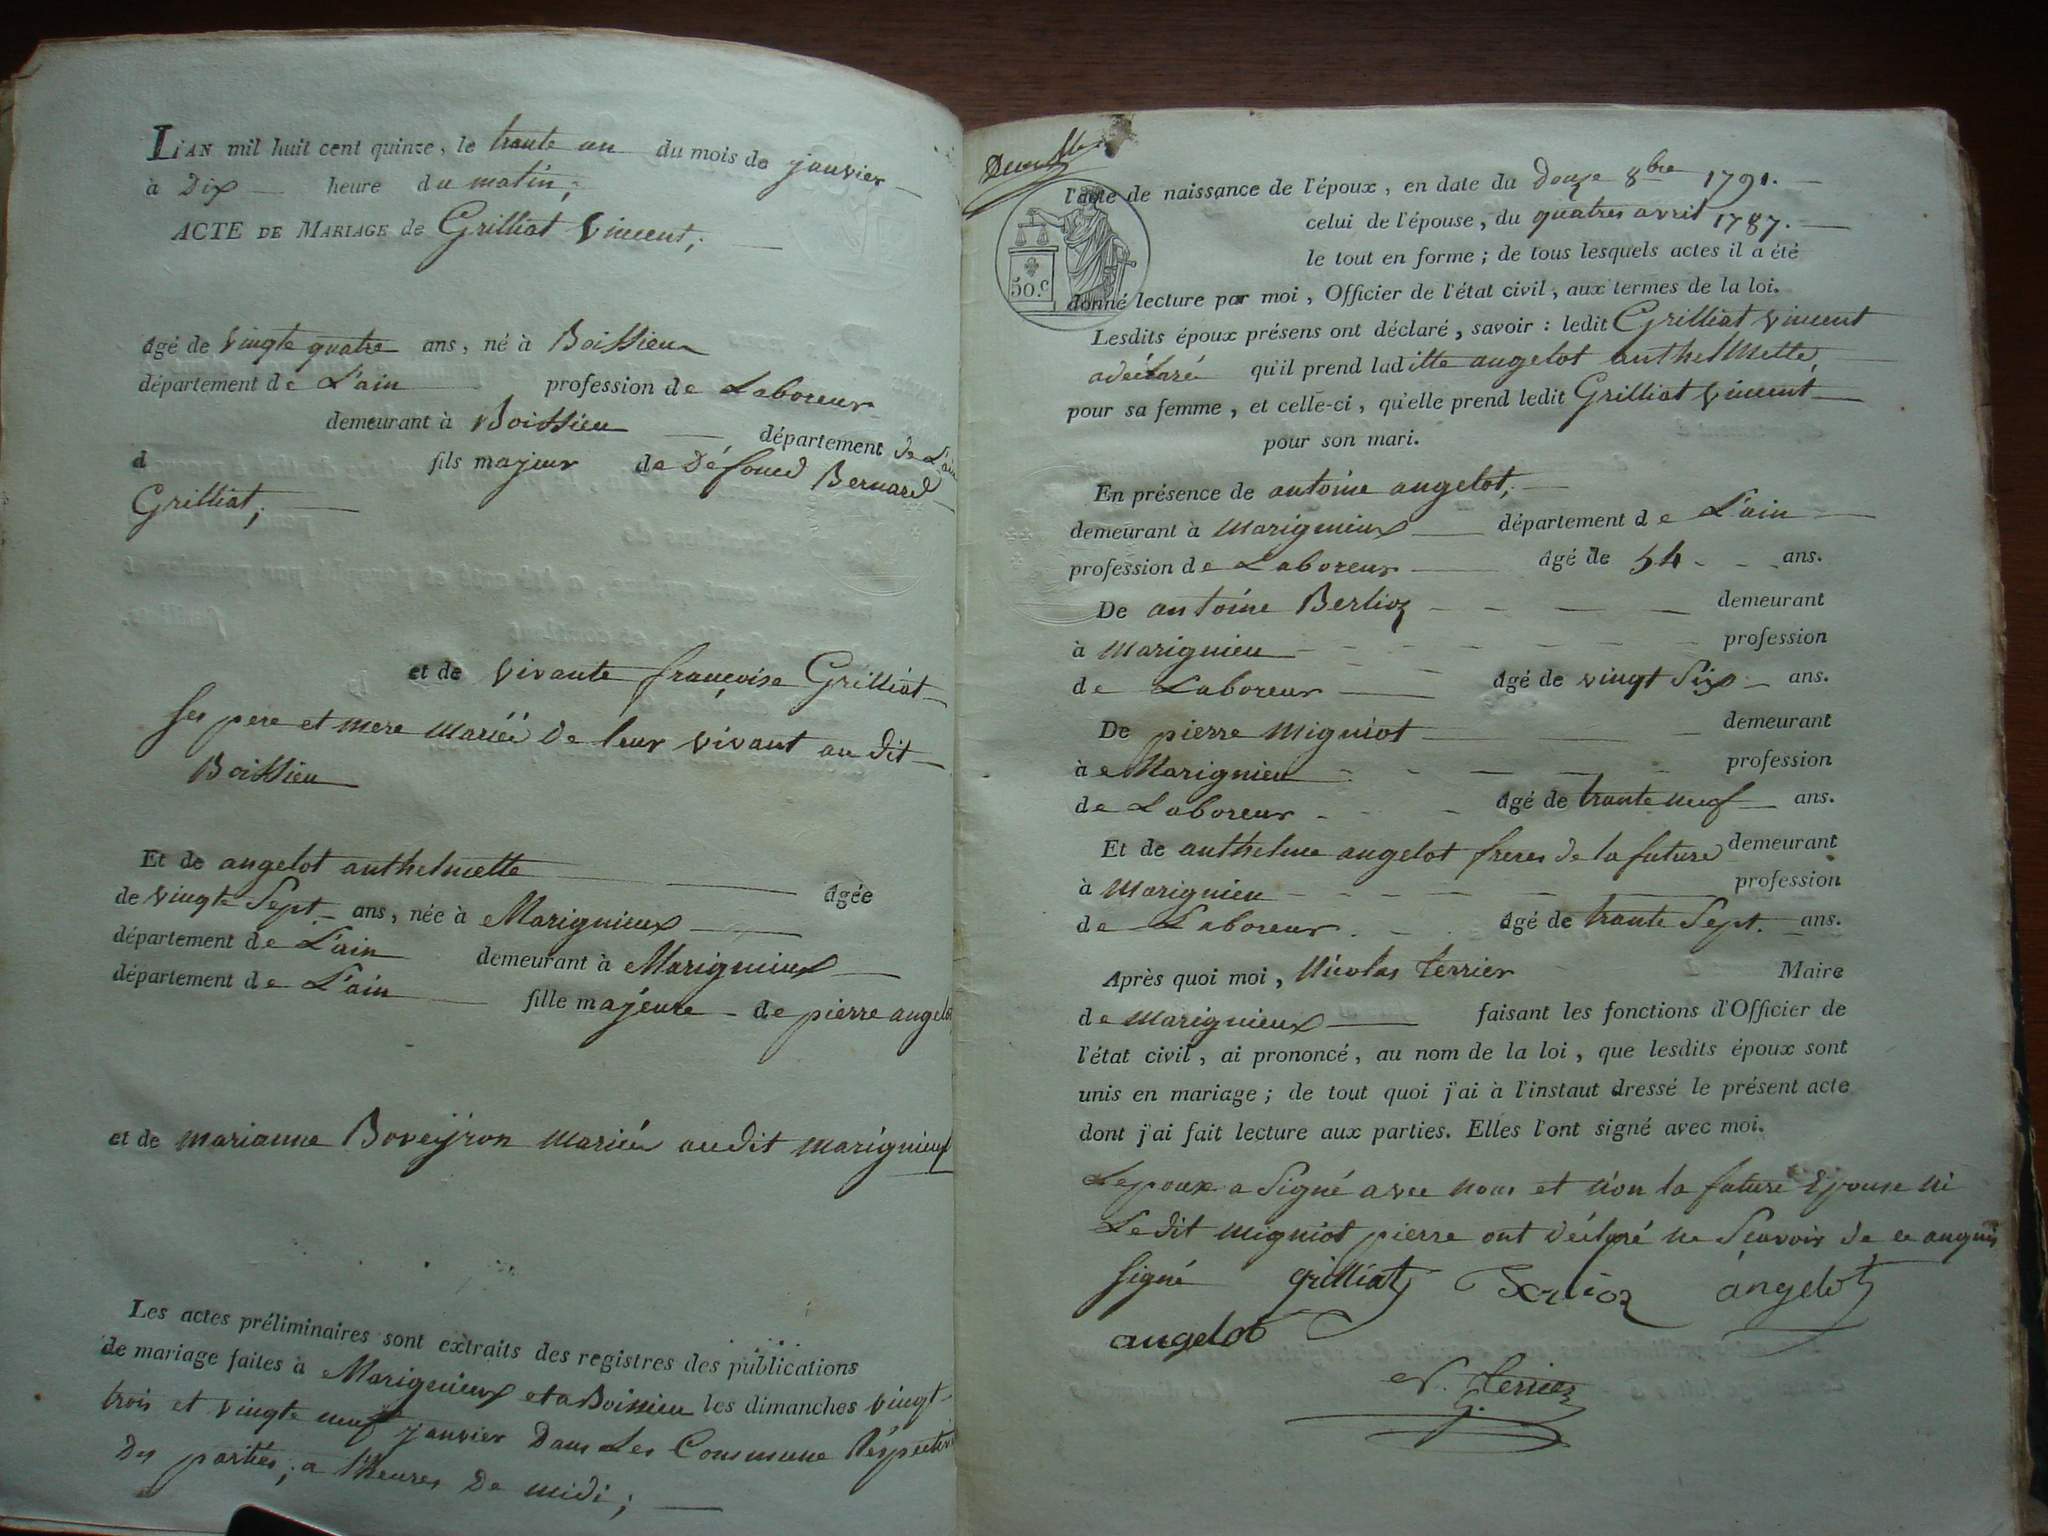 L'AN mil huit cent quinze, le trante un du mois de janvier
à Dix heure du matin;
ACTE DE MARIAGE de Grilliat Vincent;
âgé de vingte quatre ans, né à Boissieu
département de L'ain profession de Laboreur
demeurant à Boissieu département de L'ain
d fils majeur de Défound Bernard
Grilliat;
et de vivante françoise Grilliat
ses pere et mere mariéé de leur vivant au dit
Boissieu
Et de angelot anthelmette âgée
de vingte Sept ans, née à Marignieux
département de L'ain demeurant à Marignieux
département de L'ain fille majeure de pierre angelot
et de marianne Boveyron mariés audit marignieux
Les actes préliminaires sont extraits des registres des publications
de mariage faites à Marignieux et a Boissieu les dimanches vingt
trois et vingte neuf janvier Dans Les Commune Réspective
Des partiés; a l'heures De midi;
l'acte de naissance de l'époux, en date du douze 8bre 1791.
celui de l'épouse, du quatres avril 1787.
le tout en forme; de tous lesquels actes il a été
50.c
donné lecture par moi, Officier de l'état civil, aux termes de la loi.
Lesdits époux présens ont déclaré, savoir: ledit Grilliat vincent
adéclaré qu'il prend laditte angelot anthelmette,
pour sa femme, et celle-ci, qu'elle prend ledit Grilliat vincent
pour son mari.
En présence de antoine angelot;
demeurant à marignieux département de L'ain
profession de Laboreur âgé de 54 ans.
De antoine Berlioz demeurant
à marignieu profession
de Laboreur âgé de vingt Six ans.
De pierre migniot demeurant
à Marignieu profession
de Laboreur âgé de trante neuf ans.
Et de anthelme angelot freres de la future demeurant
à marignieu profession
de Laboreur âgé de trante Sept. ans.
Après quoi moi, Nicolas terrier Maire
de marignieux faisant les fonctions d'Officier de
l'état civil, ai prononcé, au nom de la loi, que lesdits époux sont
unis en mariage; de tout quoi j'ai à l'instaut dressé le présent acte
dont j'ai fait lecture aux parties. Elles l'ont signé avec moi.
Lepoux a Signé avec nous et n'on la future Epouse ni
Le dit migniot pierre ont déclaré ne Scavoir de ce anquis
signé grilliat Berlioz angelot
angelot
N. terrier